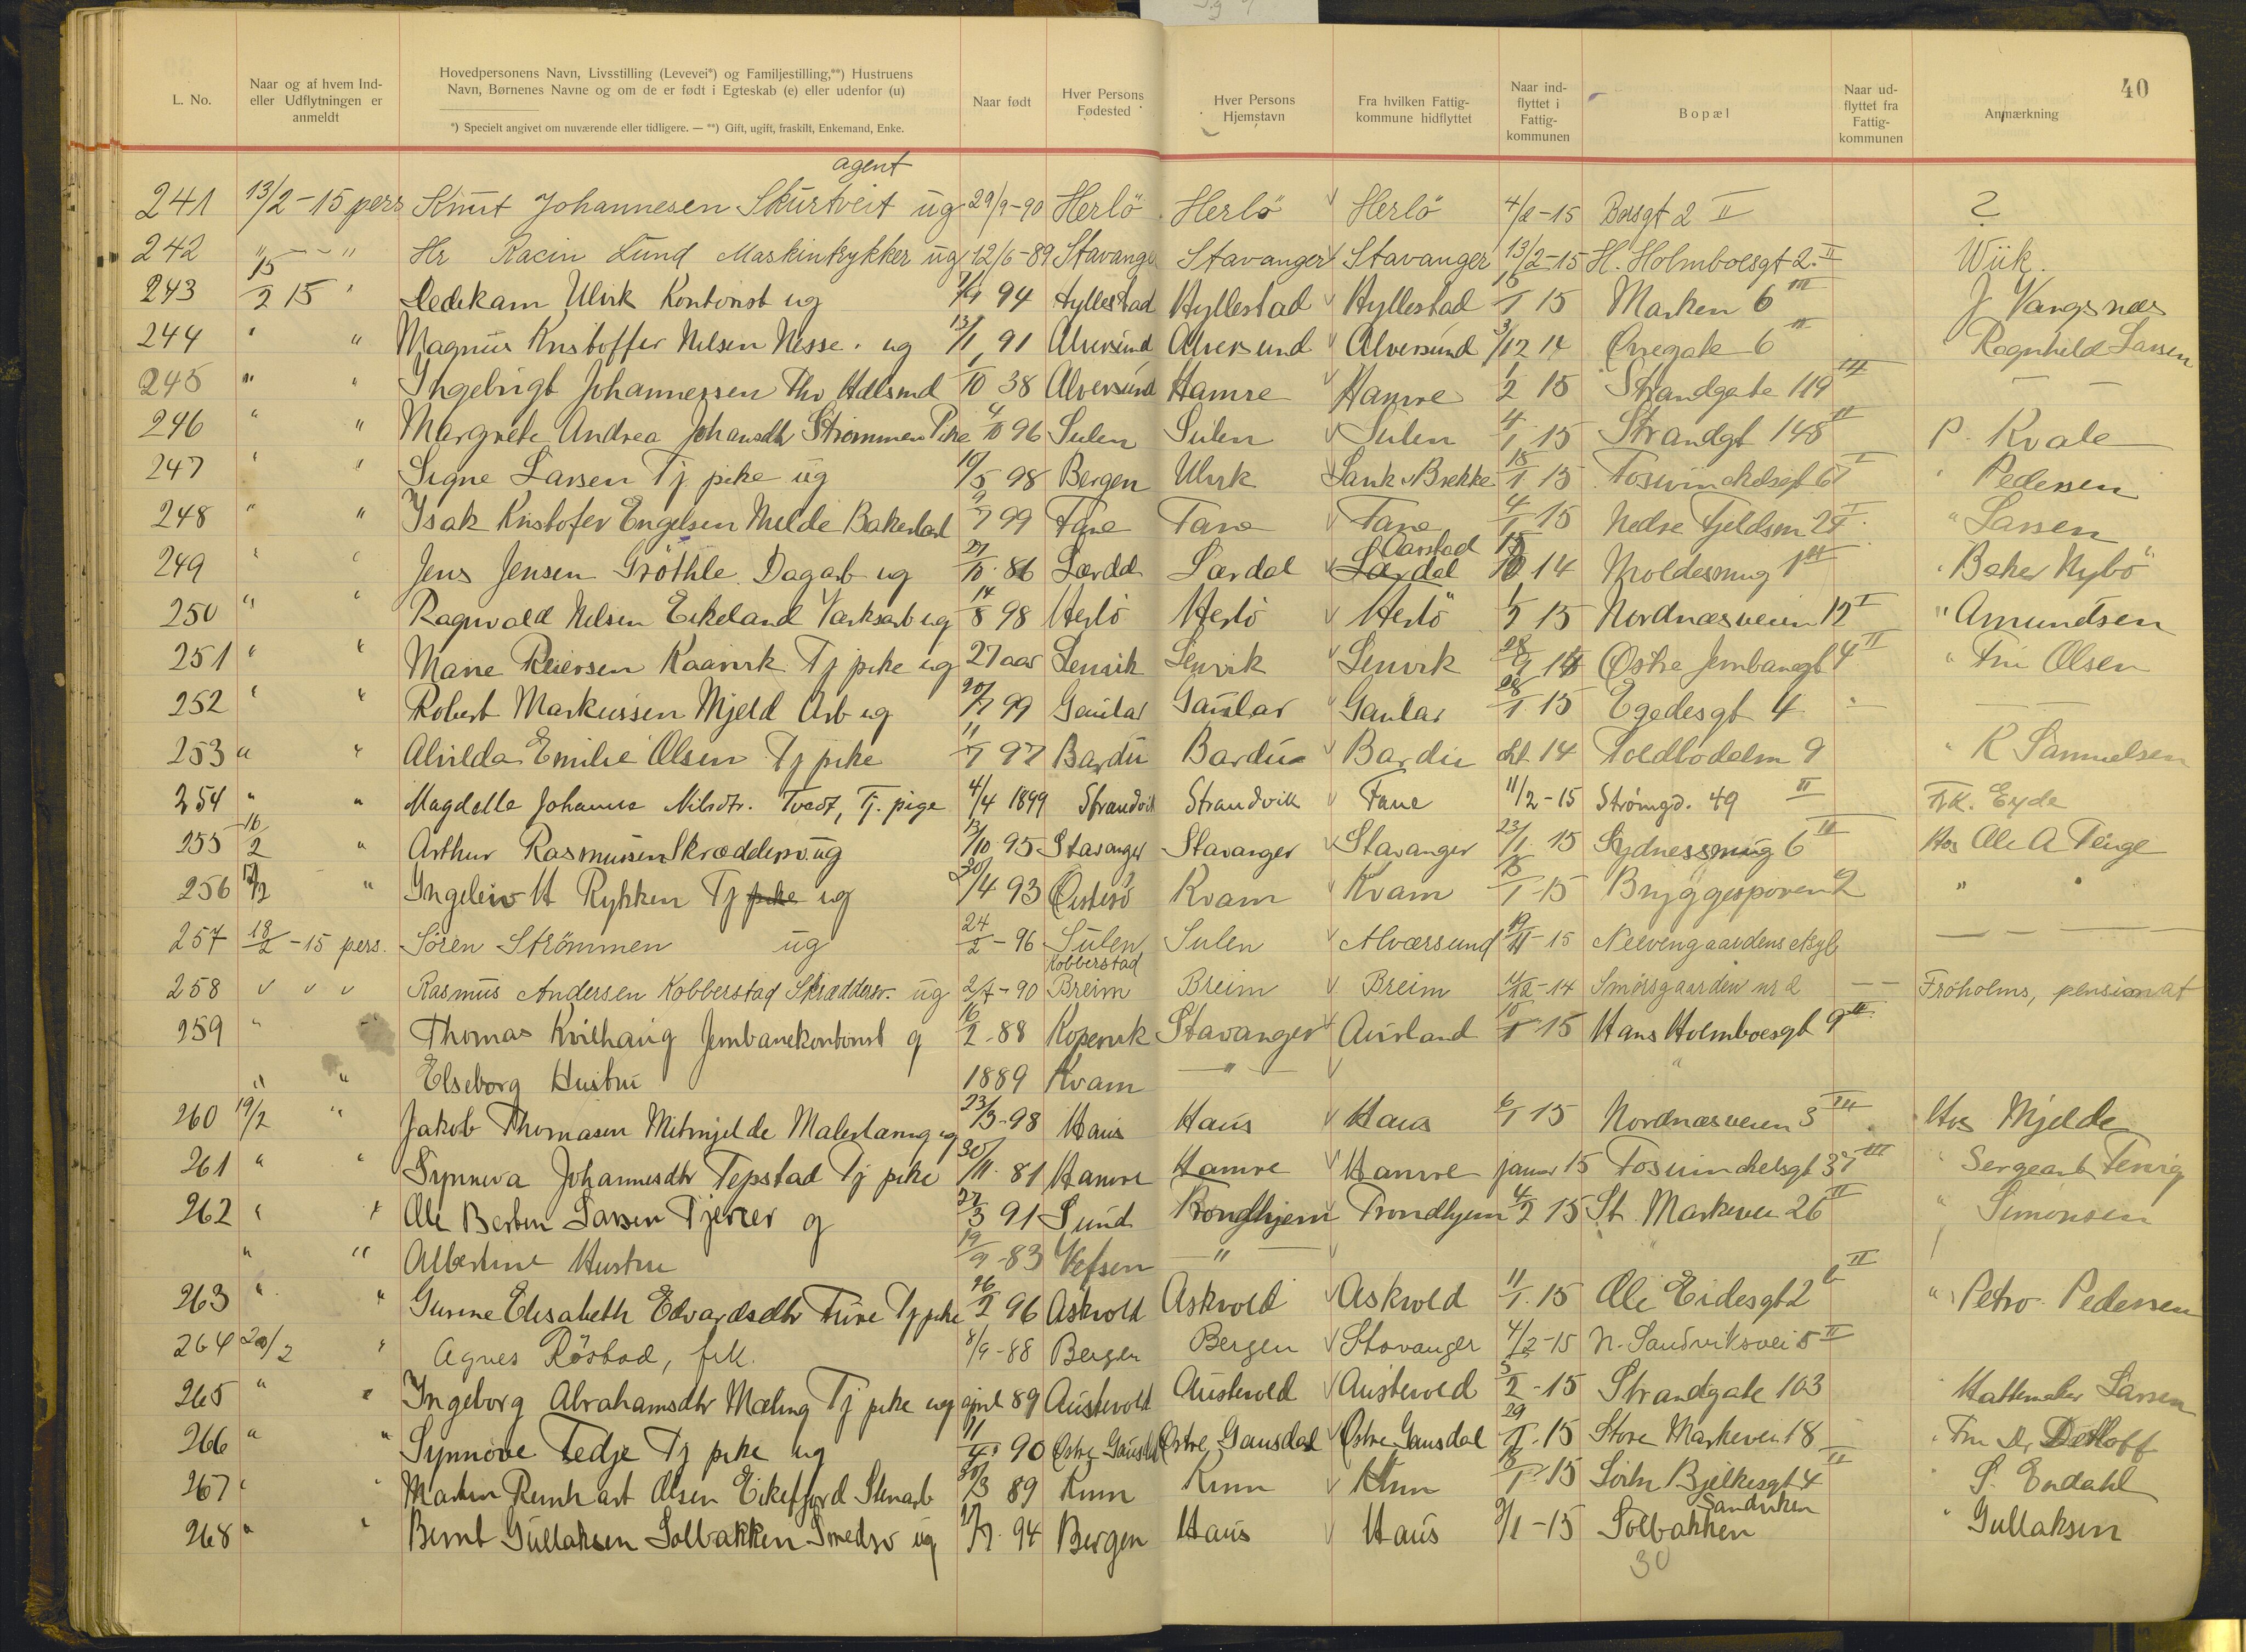 40
L. No.
Naar og af hvem Ind- eller Udflytningen er anmeldt
Hovedpersonens Navn, Livsstilling (Levevei*) og Familjestilling,**) Hustruens Navn, Børnenes Navne og om de er født i Egteskab (e) eller udenfor (u)
*) Specielt angivet om nuværende eller tidligere. — **) Gift, ugift, fraskilt, Enkemand, Enke.
Naar født
Hver Persons Fødested
Hver Persons Hjemstavn
Fra hvilken Fattig- kommune hidflyttet
Naar ind- flyttet i Fattig- kommunen
Bopæl
Naar ud- flyttet fra Fattig- kommunen
Anmærkning
agent
241 13/2-15 pers Knut Johannesen Skurtveit ug 29/9-90 Herlö Herlö Herlö 4/2-15 2 II ?
242 " - - " Hr Racin Lund Maskintrykker ug 12/6-89 Stavanger Stavanger Stavanger 13/2-15 H. Holmboesgt 2. II Wiik.
243 15/2 15 " Dedekam Ulvik Kontorist ug 94 Hyllestad Hyllestad Hyllestad 15 Marken 6 III J Vangsnæs
244 " " Magnus Kristoffer Nilsen Nesse. ug 13/1 91 Alversund Alversund Alversund 3/12 14 Øvregate 6 III Ragnhild Larsen
245 " " Ingebrigt Johannessen 1/10 38 Alversund Hamre Hamre 1/2 15 Strandgate 119 — —
246 " " Margrete Andrea Johansdtr Strømmen Pike 4/10 96 Sulen Sulen Sulen 4/1 15 Strandgt 148 II P. Kvale
247 " " Signe Larsen Tj pike ug 19/5 98 Bergen Ulvik Brekke 15/1 15 Foswinckelsgt I " Pedersen
248 " " Isak Kristofer Engelsen Milde 9/7 99 Fane Fane Fane 4/1 15 Nedre Fjeldsm 24 I " Larsen
Aarstad
249 " " Jens Jensen Gröthle Dagarb ug 27/10. 86 Lærdal Lærdal Lærdal 14 Moldesmug 1 " Baker Nybö
250 " " Ragnvald Nilsen Eikeland ug 14/8 98 Herlö Herlö Herlö 1/2 15 Nordnæsveien 12 I " Amundsen
251 " " Marie Reiersen Kaarvik Tj pike ug 27 aar Lenvik Lenvik Lenvik Østre Jernbanegt 4 II " Fru Olsen
252 " " Robert Markussen Mjeld Arb ug 99 Gaular Gaular Gaular 28/1 15 Egedesgt 4 — —
253 " " Alvilda Emilie Olsen Tj pike 11/7 97 Bardu Bardu Bardu okt 14 Toldbodalm 9 " K Samuelsen
254 " " Magdelle Johanne Nilsdtr. Tveit, Tj. pige 4/4 1899 Strandvik Strandvik Fane 11/2-15 Strömgd. 49 II Frk. Eyde
255 16/2 " Arthur Rasmussen Skræddersv. ug 13/10 95 Stavanger Stavanger Stavanger 23/1 15 Sydnessmug 6 III Hos Ole A Tenge
256 17/2 " Ingeleiv H Rykken Tj pike ug 30/4 93 Östesö Kvam Kvam 15 Bryggesporen 2 " "
257 18/2-15 pers. Sören Strömmen ug 24/2-96 Sulen Sulen Alværsund 15 — — — —
Kobberstad
258 v v v Rasmus Andersen Kobberstad Skræddersv. ug 2/7-90 Breim Breim Breim 14 Smörsgaarden nr 2 — — Fröholms, pensionat
259 " Thomas Kvilhaug Jernbanekontorist g 16/2-88 Kopervik Stavanger Aurland 15 Hans Holmboesgt 9 III
" " Elseborg Hustru 1889 Kvam — " —
260 19/2 " Jakob Thomasen Mitmjelde Malerlærug ug 23/3-98 Haus Haus Haus 6/1 15 Nordnæsveien 3 III Hos Mjelde
261 " " Synneva Johannesdtr Tepstad Tj pike 30/11. 81 Hamre Hamre Hamre januar 15 Foswinckelsgt 37 III " Sergeant
262 " " Ole Larsen Tjener g 27/3 91 Sund Trondhjem Trondhjem 4/2 15 St. Markevei 26 II " Simonsen
" " Albertine Hustru 19/9-83 Vefsen — " —
263 " " Gurine Elisabeth Edvardsdtr Fure Tj pike 26/2 96 Askvold Askvold Askvold 11/1. 15 Ole Eidesgt 2 b II " Petro Pedersen
264 20/2 " Agnes Röstad, frk. 8/9-88 Bergen Bergen Stavanger 4/2-15 N. Sandviksvei 5 II
265 " " Ingeborg Abrahamsdtr Mæling Tj pike ug april 89 Austevold Austevold Austevold 5/2-15 Strandgate 103 " Hattemaker Larsen
266 " " Synnöve Tedje Tj pike ug 90 Østre Gausdal Østre Gausdal Østre Gausdal 29/1. 15 Store Markevei 18 " Fru Dr Detloff
267 " " Martin Reinhart Olsen Eikefjord Stenarb 30/3 89 Kinn Kinn Kinn 15 Bjelkesgt 4 II " S. Endahl
Sandviken
268 " " Bernt Gullaksen Solbakken Smedsv ug 94 Bergen Haus Haus 15 Solbakken " Gullaksen
30